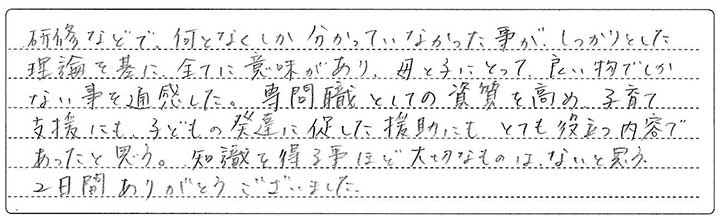 研修などで、何となくしか分かっていなかった事が、しっかりとした
理論を基に、全てに意味があり、母と子にとって、良い物でしか
ない事を通感した。専問職としての資質を高め、子育て
支援にも、子どもの発達に促した援助にも、とても役立つ内容で
あったと思う。知識を得る事ほど大切なものは、ないと思う。
2日間ありがとうございました。